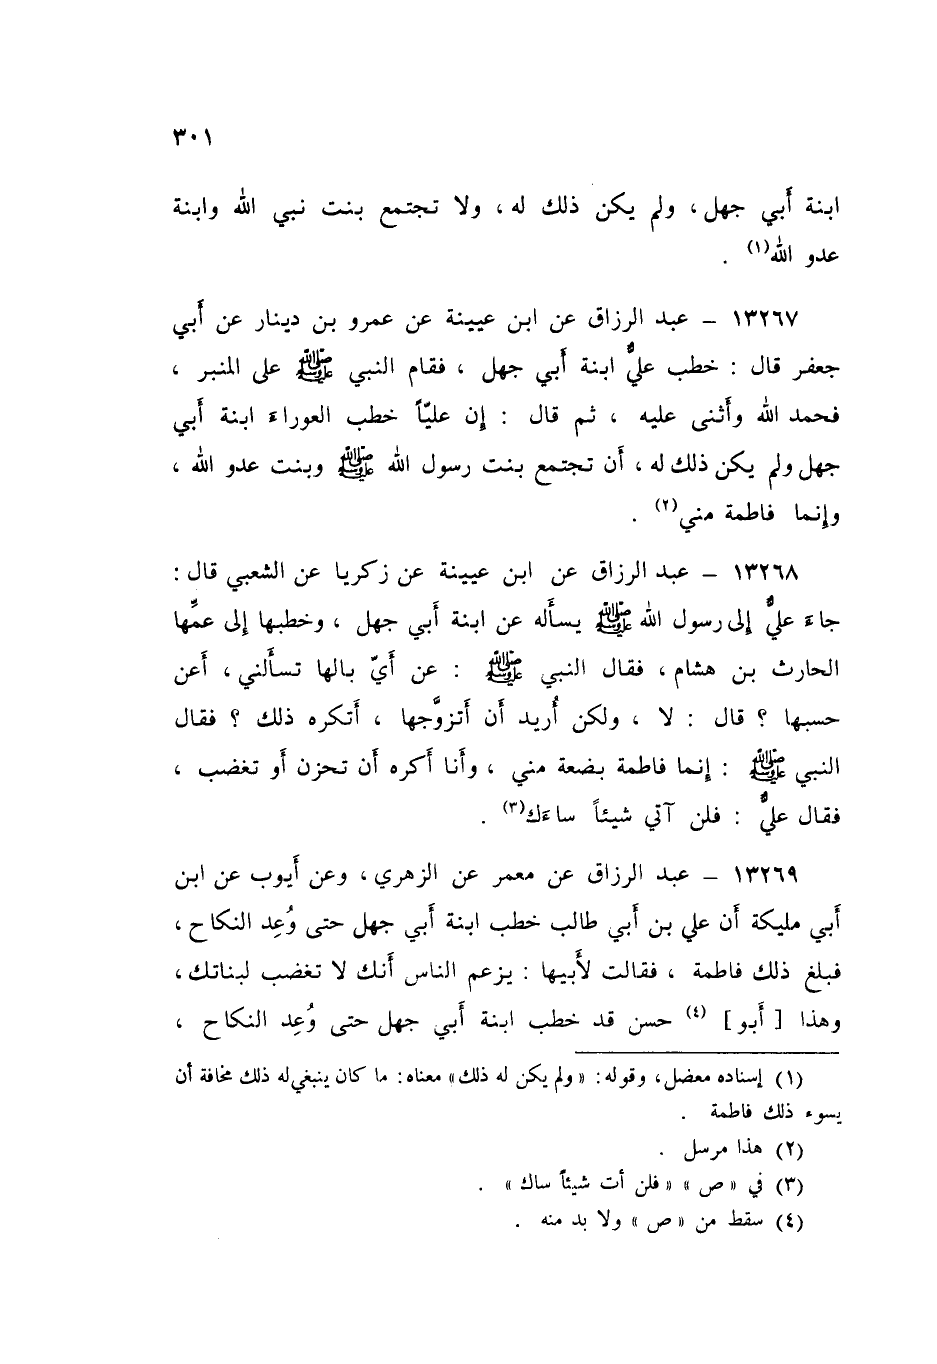 ٣٠١
ابنة أَبي جهل، ولم يكن ذلك له، ولا تجتمع بنت نبي الله وابنة
عدو الله(١) .
١٣٢٦٧ – عبد الرزاق عن ابن عيينة عن عمرو بن دينار عن أَبي
جعفر قال : خطب عليٌّ ابنة أَبي جهل ، فقام النبي ﷺ على المنبر ،
فحمد الله وأَثنى عليه ، ثم قال : إِن عليّاً خطب العوراءَ ابنة أَبي
جهل ولم يكن ذلك له ، أَن تجتمع بنت رسول الله ﷺ وبنت عدو الله ،
وإِنما فاطمة مني(٢) .
١٣٢٦٨ – عبد الرزاق عن ابن عيينة عن زكريا عن الشعبي قال :
جاءَ عليٌّ إِلى رسول الله ﷺ يسأَله عن ابنة أَبي جهل ، وخطبها إِلى عمِّها
الحارث بن هشام ، فقال النبي ﷺ : عن أَيّ بالها تسأَلني ، أَعن
حسبها ؟ قال : لا ، ولكن أُريد أَن أَتزوَّجها ، أَتكره ذلك ؟ فقال
النبي ﷺ : إِنما فاطمة بضعة مني ، وأَنا أَكره أَن تحزن أَو تغضب ،
فقال عليٌّ : فلن آتي شيئاً ساءَك(٣) .
١٣٢٦٩ – عبد الرزاق عن معمر عن الزهري ، وعن أَيوب عن ابن
أَبي مليكة أَن علي بن أَبي طالب خطب ابنة أَبي جهل حتى وُعِد النكاح ،
فبلغ ذلك فاطمة ، فقالت لأَبيها : يزعم الناس أَنك لا تغضب لبناتك ،
وهذا [ أَبو ] (٤) حسن قد خطب ابنة أَبي جهل حتى وُعِد النكاح ،
(١) إسناده معضل، وقوله: «ولم يكن له ذلك» معناه: ما كان ينبغي له ذلك مخافة أن
يسوء ذلك فاطمة .
(٢) هذا مرسل .
(٣) في «ص» «فلن أت شيئاً ساك» .
(٤) سقط من «ص» ولا بد منه .